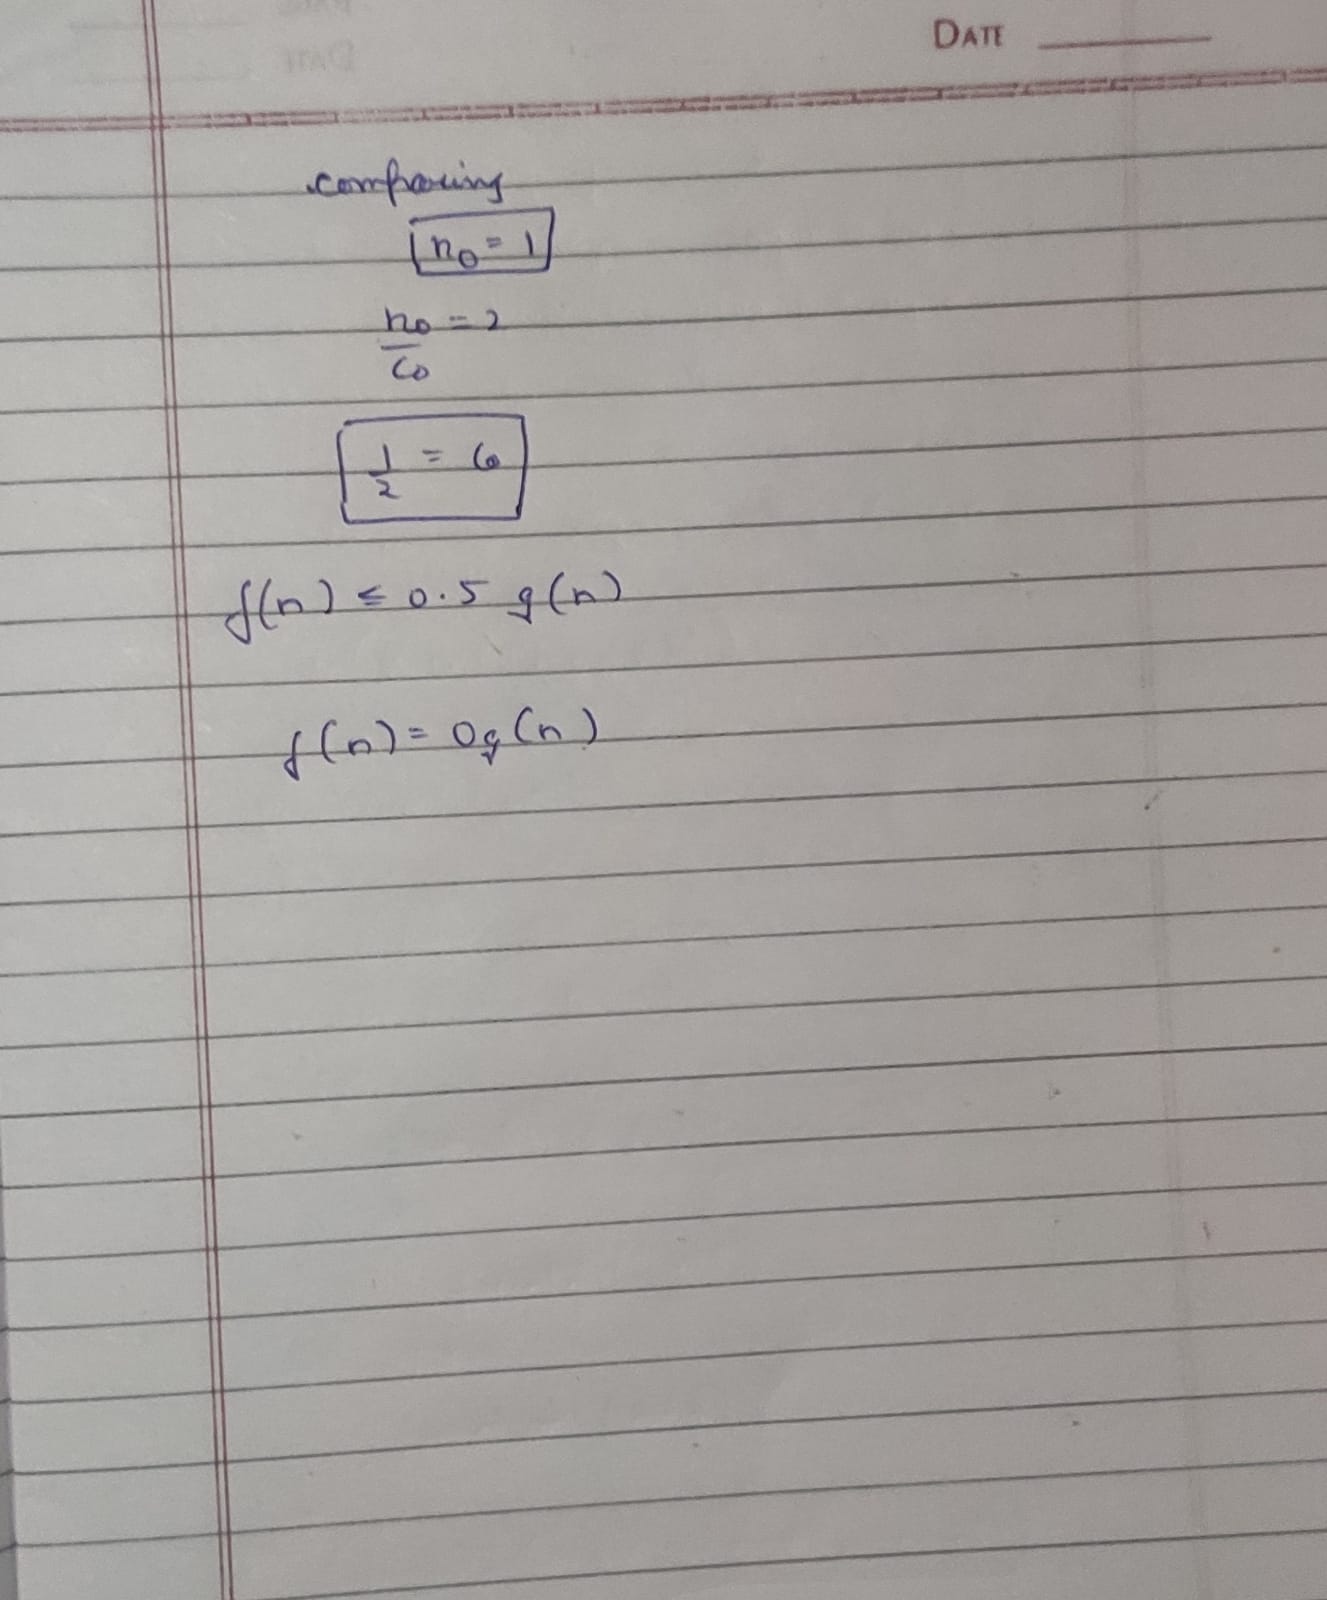 DATE
comparing
n₀ = 1
n₀ = 2
C₀
1/2 = C₀
f(n) ≤ 0.5 g(n)
f(n) = Og(n)